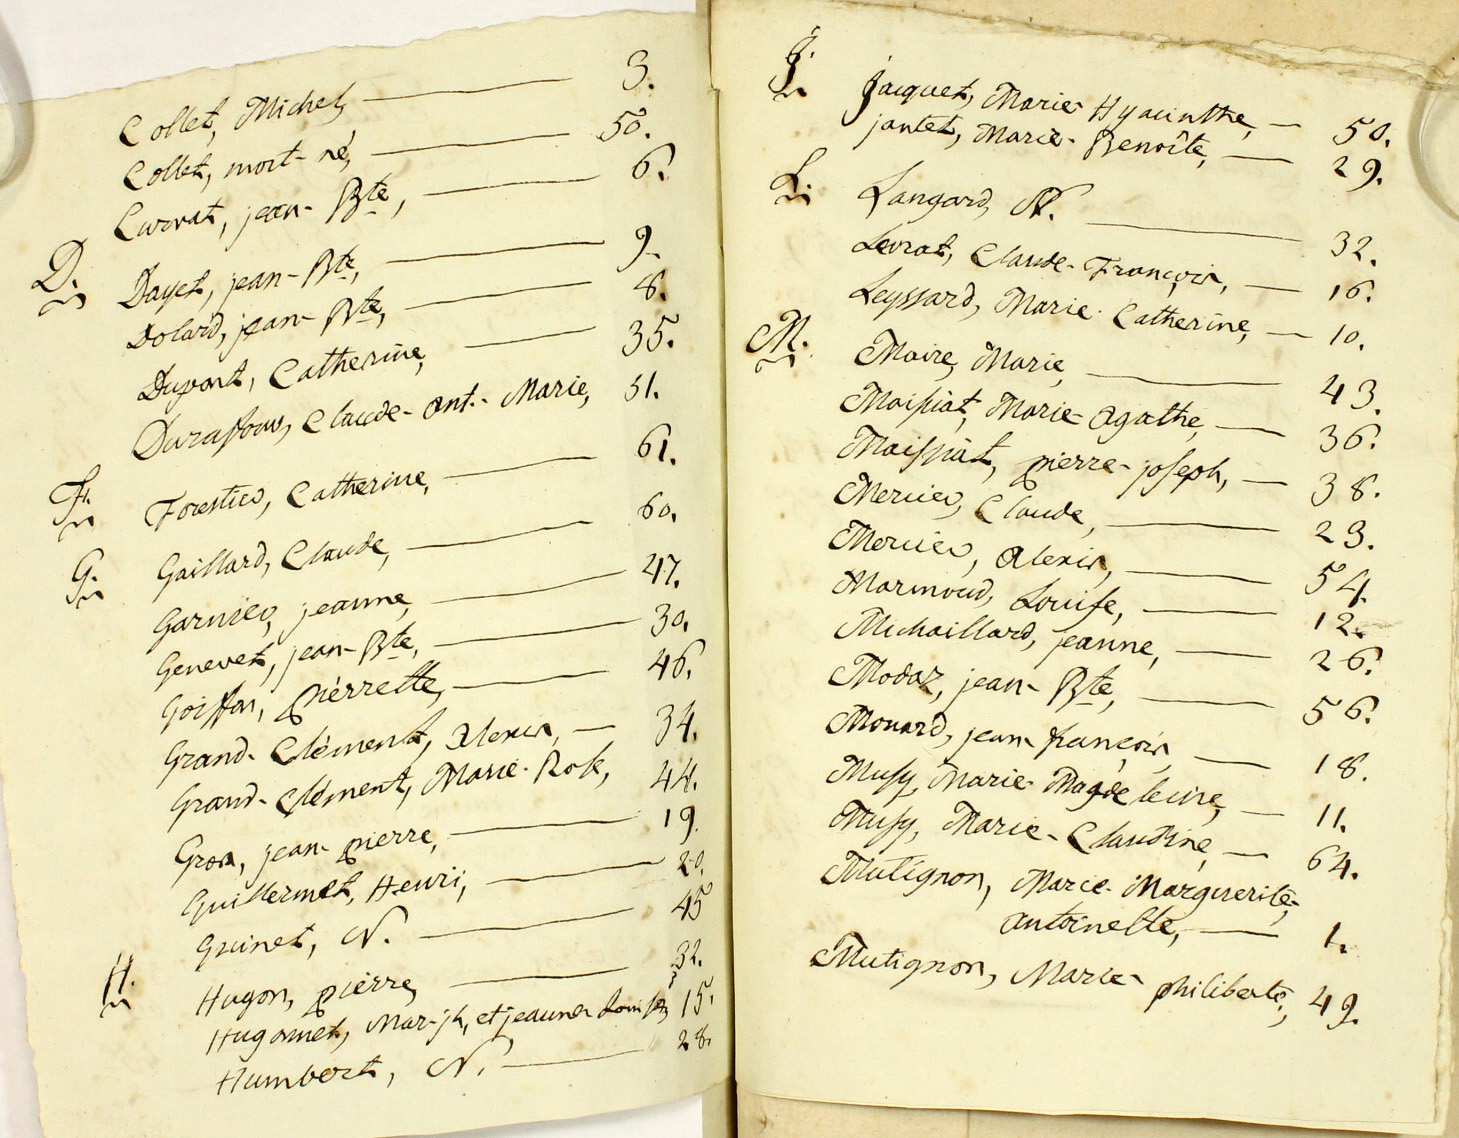 Collet, Michel, 3.
Collet, mort-né, 50.
Curvat, jean-Bte, 6.
D. Dayet, jean-Bte, 9.
Dolard, jean-Bte, 8.
Dupont, Catherine, 35.
Claude-Ant.-Marie, 51.
F. Forestier, Catherine, 61.
G. Gaillard, Claude, 60.
Garnier, jeanne, 47.
Genevet, jean-Bte, 30.
Goiffon, pierrette, 46.
Grand-Clément, Alexis, 34.
Grand-Clément, Marie-Rose, 44.
Gros, jean-pierre, 19.
Guillermet, Henri, 20.
Guinet, N. 45
H. Hugon, pierre, 32.
Hugonnet, Mar-jh, et jeanne Louise, 15.
Humbert, N. 28.
J. Jacquet, Marie-Hyacinthe, 50.
jantet, Marie-Benoîte, 29.
L. Langard, N. 32.
Levrat, Claude-François, 16.
Leyssard, Marie-Catherine, 10.
M. Maire, Marie, 43.
Maissiat, Marie-Agathe, 36.
Maissiat, pierre-joseph, 38.
Mercier, Claude, 23.
Mercier, Alexis, 54.
Marmoud, Louise, 12.
Michaillard, jeanne, 26.
Modaz, jean-Bte, 56.
Monard, jean-françois, 18.
Musy, Marie-Magdeleine, 11.
Musy, Marie-Claudine, 64.
Mutignon, Marie-Marguerite-
Antoinette, 1.
Mutignon, Marie-philiberte, 49.